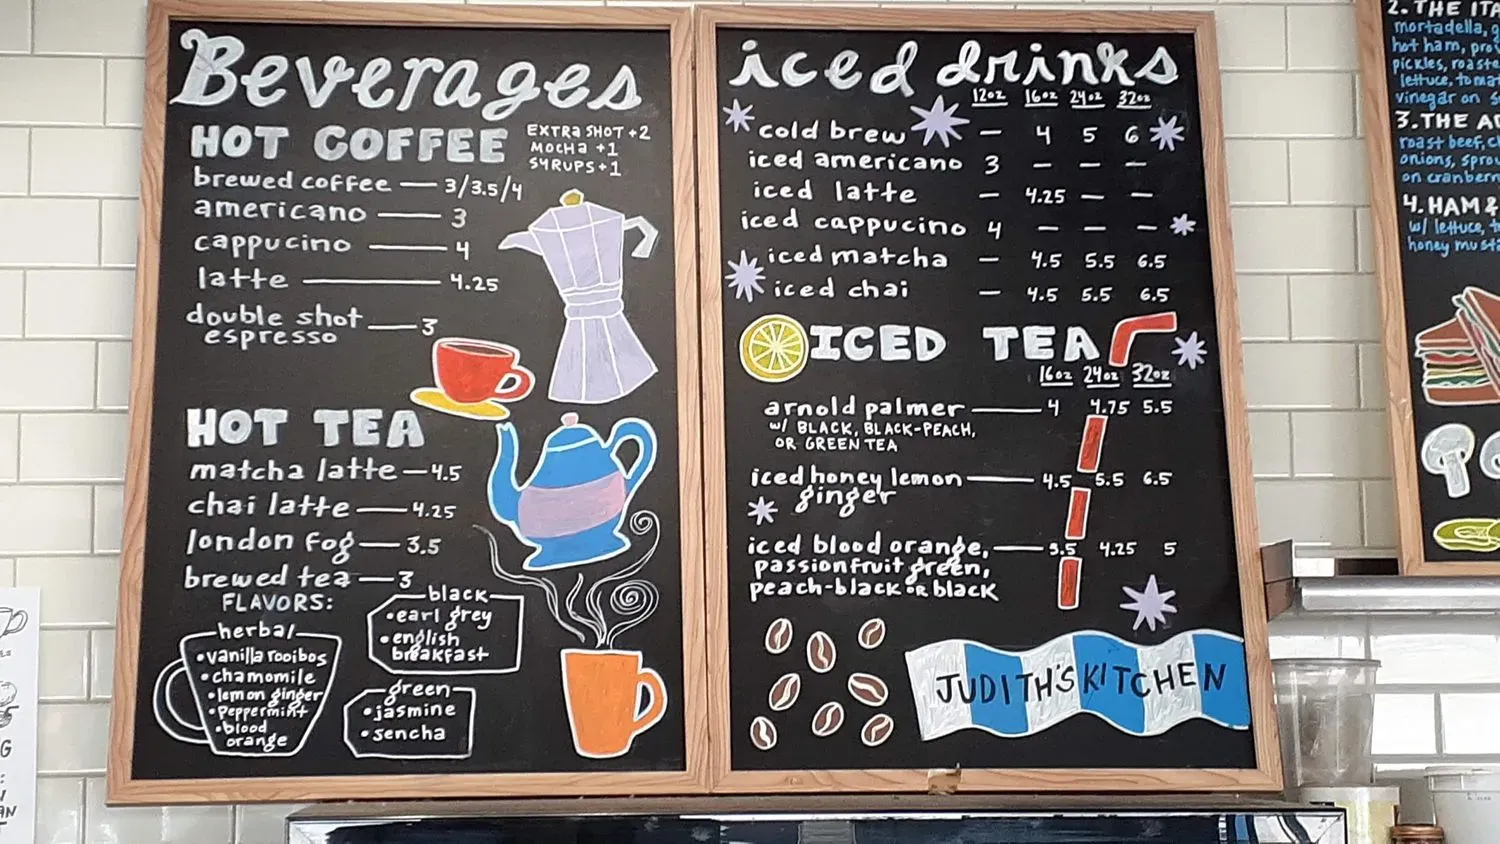 Beverages
HOT COFFEE
EXTRA SHOT +2
MOCHA +1
SYRUPS +1
brewed coffee — 3/3.5/4
americano — 3
cappucino — 4
latte — 4.25
double shot
espresso — 3
HOT TEA
matcha latte — 4.5
chai latte — 4.25
london fog — 3.5
brewed tea — 3
FLAVORS:
herbal
•vanilla rooibos
•chamomile
•lemon ginger
•Peppermint
•blood
orange
black
•earl grey
•english
breakfast
green
•jasmine
•sencha
iced drinks
12oz 16oz 24oz 32oz
cold brew — 4 5 6
iced americano 3 — — —
iced latte — 4.25 — —
iced cappucino 4 — — —
iced matcha — 4.5 5.5 6.5
iced chai — 4.5 5.5 6.5
ICED TEA
16oz 24oz 32oz
arnold palmer — 4 4.75 5.5
w/ BLACK, BLACK-PEACH,
OR GREEN TEA
iced honey lemon — 4.5 5.5 6.5
ginger
iced blood orange, — 3.5 4.25 5
passionfruit green,
peach-black OR black
JUDITH'S KITCHEN
2. THE ITA
mortadella, g
hot ham, pro
pickles, roaste
lettuce, tomat
vinegar on
3. THE
roast beef,
onions, sprou
on cranberr
4. HAM &
w/ lettuce,
honey musta
G
AN